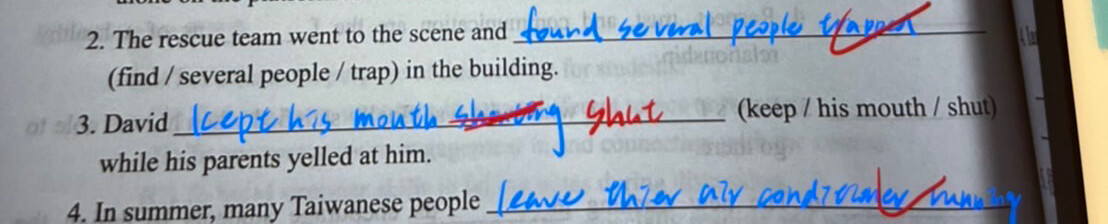 2. The rescue team went to the scene and found several people trapped
(find / several people / trap) in the building.
3. David kept his mouth shutting shut (keep / his mouth / shut)
while his parents yelled at him.
4. In summer, many Taiwanese people leave thier air conditionder running